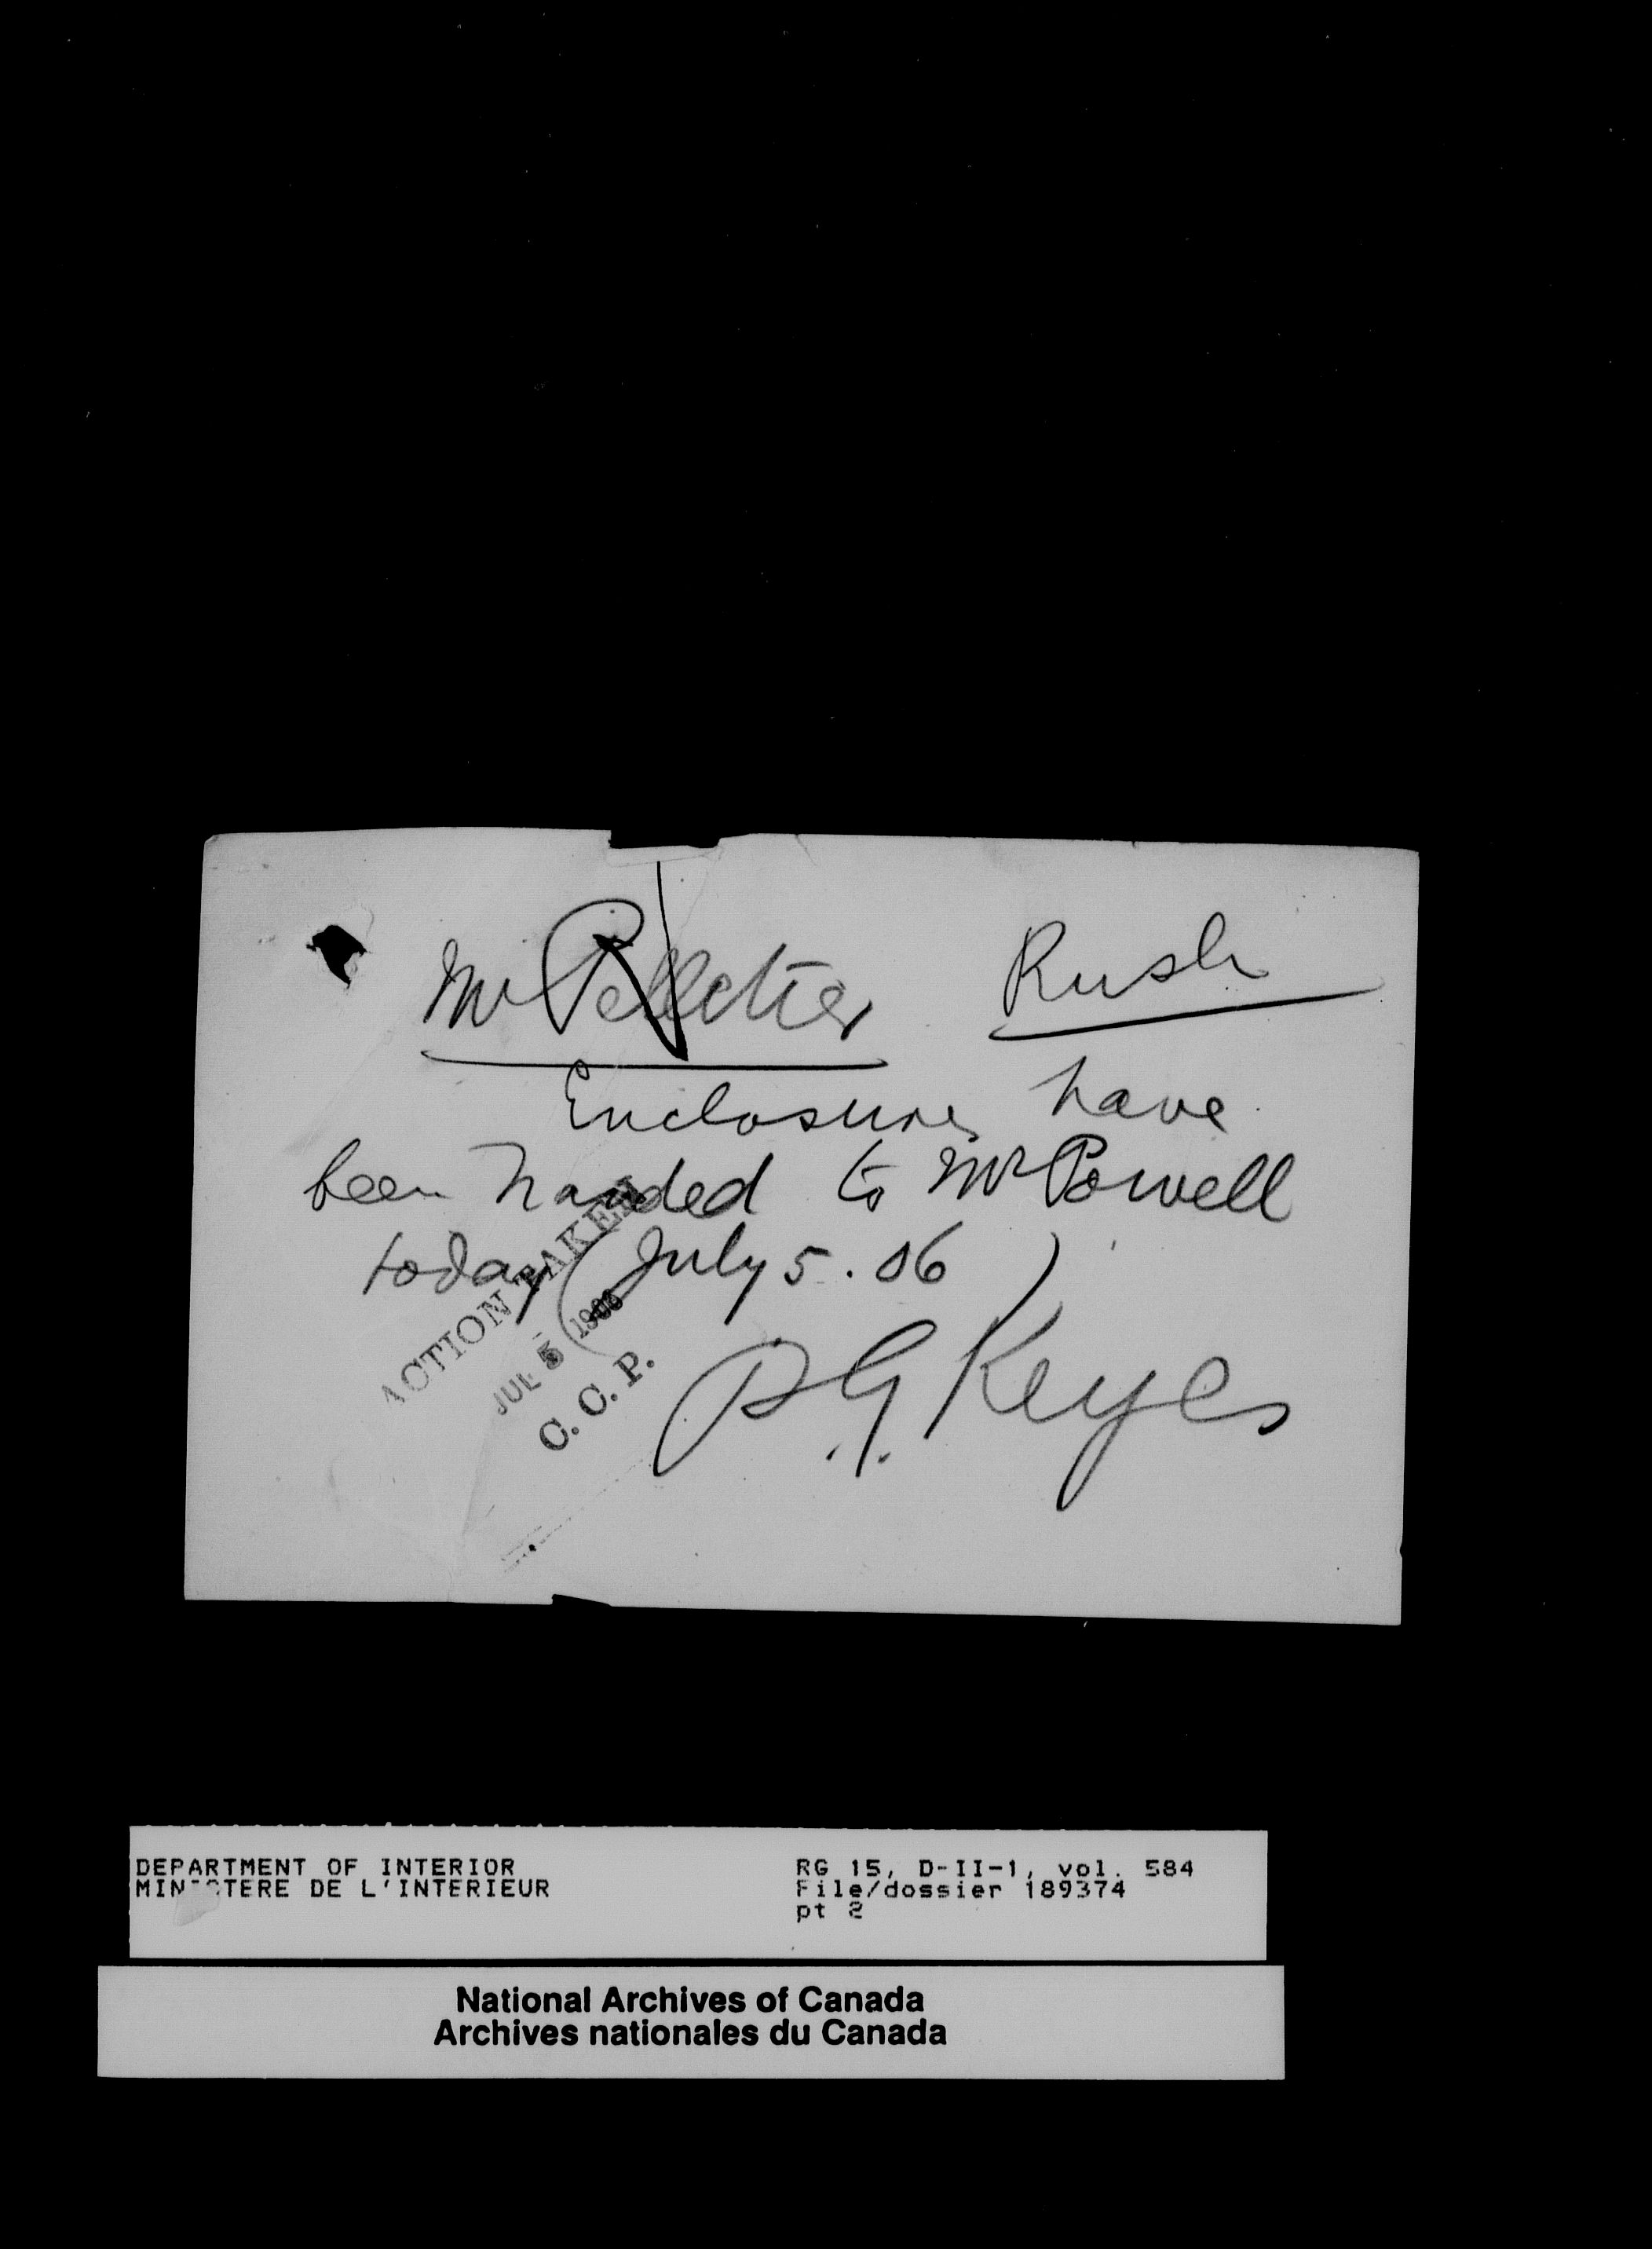 Mr Pelletier Rush
Enclosures have
been handed to Mr Powell
today (July 5. 06)
P.G. Keyes
ACTION TAKEN
JUL 5 1906
C. C. P.
DEPARTMENT OF INTERIOR
MINISTERE DE L'INTERIEUR
RG 15, D-II-1, vol. 584
File/dossier 189374
pt 2
National Archives of Canada
Archives nationales du Canada